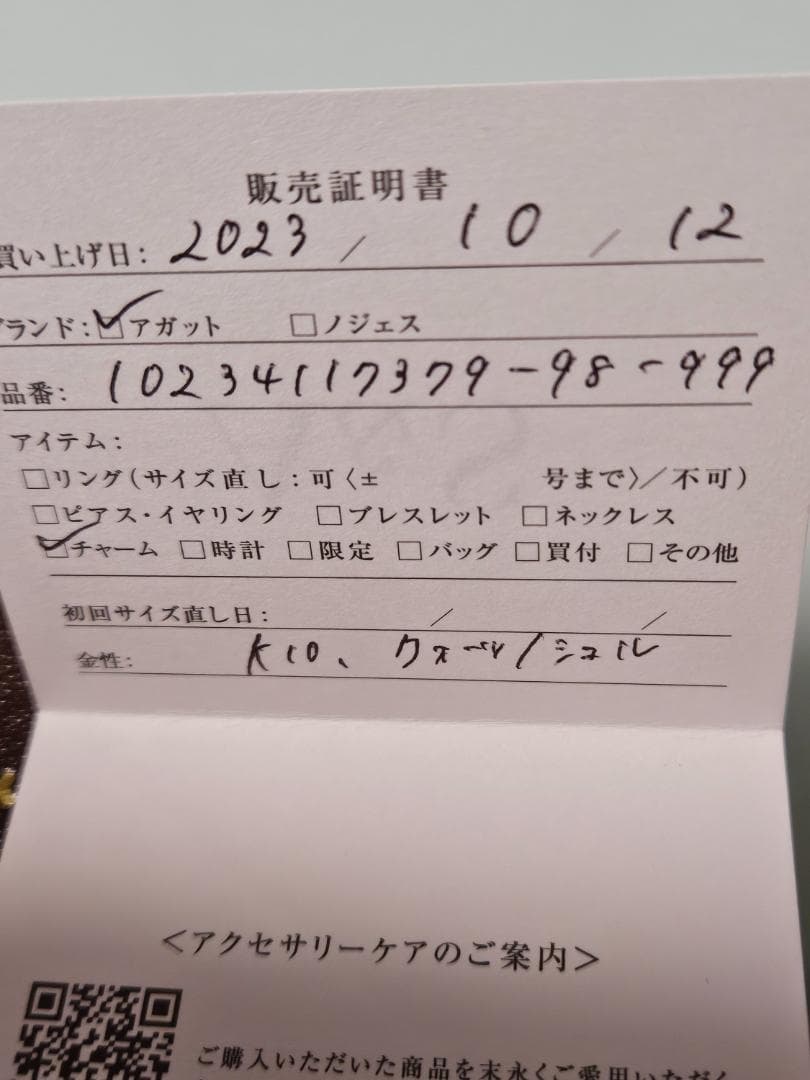 販売証明書
買い上げ日: 2023 / 10 / 12
ランド: ☑アガット □ノジェス
品番: 10234117379-98-999
アイテム:
□リング(サイズ直し:可〈± 号まで〉/不可)
□ピアス・イヤリング □ブレスレット □ネックレス
☑チャーム □時計 □限定 □バッグ □買付 □その他
初回サイズ直し日: / /
金性: K10、
<アクセサリーケアのご案内>
ご購入いただいた商品を末永くご愛用いただく